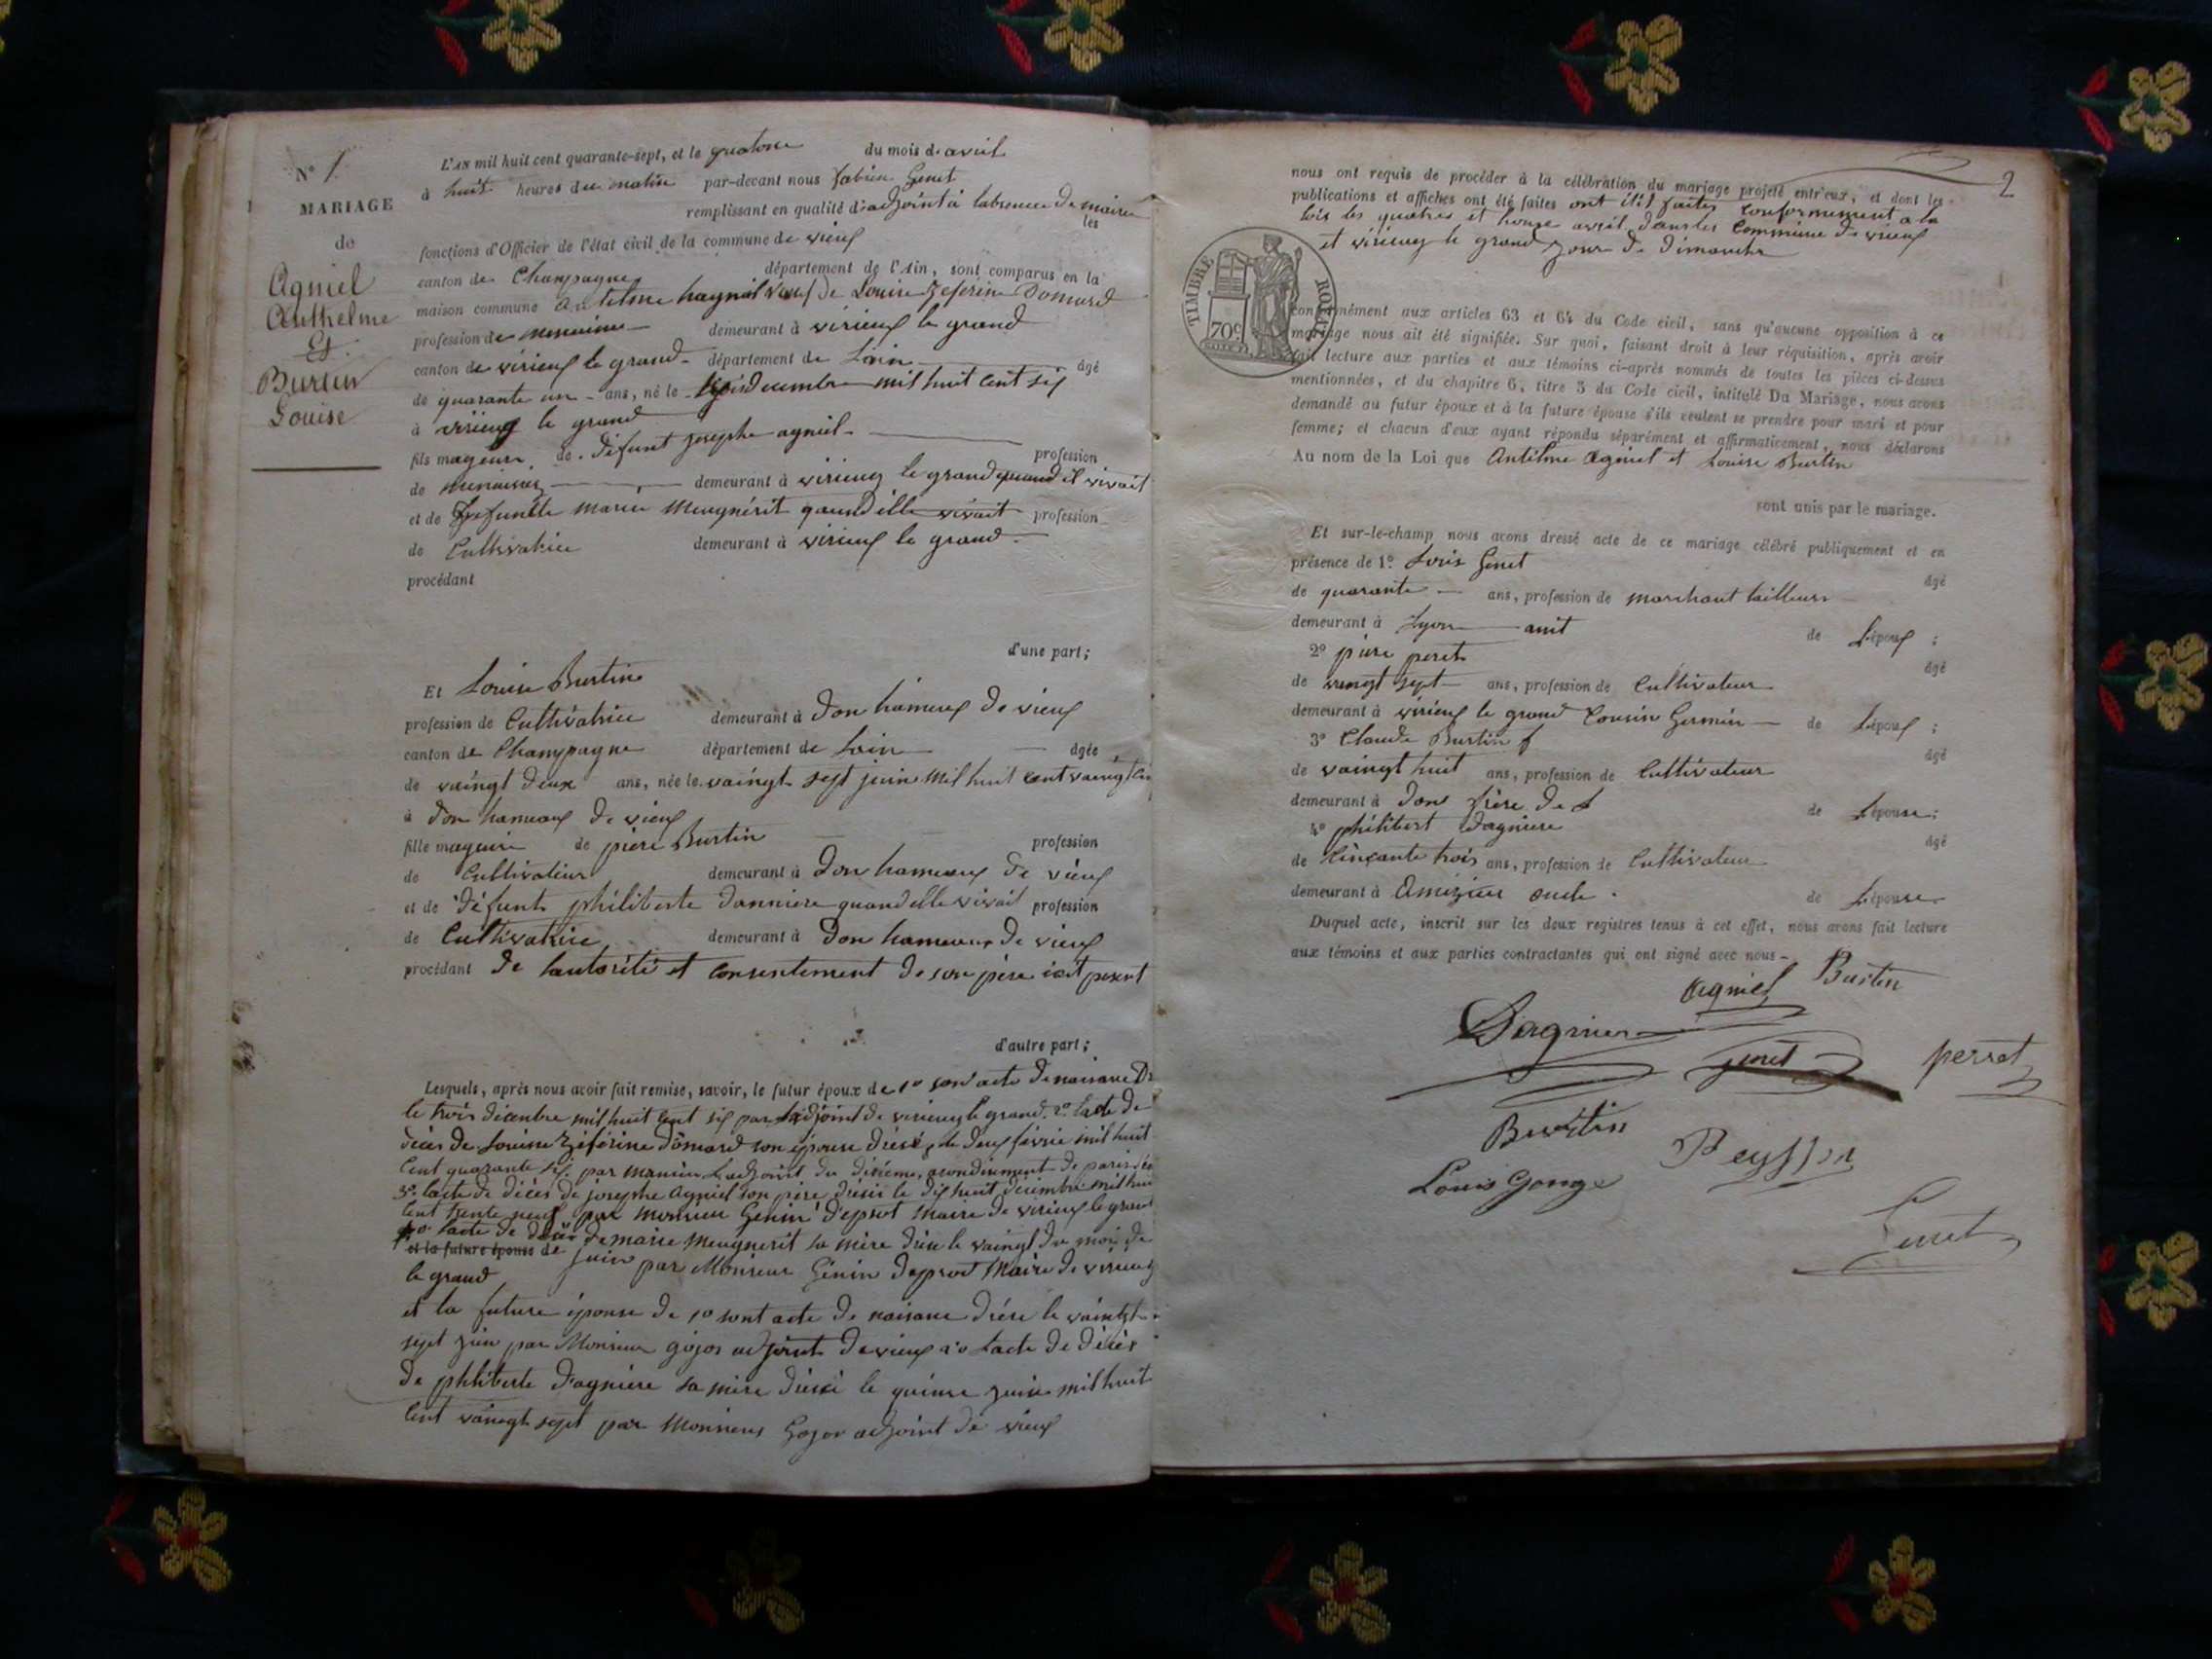 N° 1
MARIAGE
de
Agniel
Anthelme
Et
Burtin
Louise
L'AN mil huit cent quarante-sept, et le quatorze du mois d'avril
à huit heures du matin par-devant nous fabien Genet
remplissant en qualité d'adjoint à labsence de maire les
fonctions d'Officier de l'état civil de la commune de vieux
canton de Champagne département de l'Ain, sont comparus en la
maison commune antelme hagniel veuf de Louise Zeferine Domard
profession de menuisier demeurant à virieux le grand
canton de virieux le grand département de Lain âgé
de quarante un ans, né le trois decembre mil huit cent six
à virieux le grand
fils mageur de défunt josephe agniel profession
de menuisier demeurant à virieux le grand quand il vivait
et de defunte marie Meugnérit quand elle vivait profession
de Cultivatrice demeurant à virieux le grand
procédant
d'une part;
Et Louise Burtin
profession de Cultivatrice demeurant à Don hameux de vieux
canton de Champagne département de Lain âgée
de vaingt deux ans, née le vaingt sept juin mil huit cent vaingt
à Don hameaux de vieux
fille mageure de piere Burtin profession
de Cultivateur demeurant à Don hameaux de vieux
et de défunte philiberte Danniere quand elle vivait profession
de Cultivatrice demeurant à Don hameaux de vieux
procédant de lautorité et consentement de son père isit present
d'autre part;
Lesquels, après nous avoir fait remise, savoir, le futur époux de 1º son acte de naisance
le trois décenbre mil huit cent six par ladjoint de virieux le grand. 2º lacte de
décès de Louise Zéférine Domard son épouse dresé le deux févrié mil huit
Cent quarante six par monsieur Ladjoint du dixième arondisement de paris
3º lacte de décès de josephe Agniel son père drésé le dix huit décembre mil huit
Cent trente neuf par monsieur Genin d'eprost maire de virieux le grand
4º lacte de décès de marie Meugnerit sa mère drésé le vaingt du mois de
et la future épouse de juin par Monsieur Génin Deprost Maire de virieux
le grand
et la future épouse de 1º sont acte de naisance drésé le vaingt
sept juin par Monsieur gojon adjoint de vieux 2º lacte de décès
de philiberte Dagniere sa mère drésé le quinse juin mil huit
Cent vaingt sept par Monsieur Gojon adjoint de vieux
2
nous ont requis de procéder à la célébration du mariage projeté entr'eux, et dont les
publications et affiches ont été faites ont étés faites conformement a la
lois les quatres et honze avril dans les Commune de vieux
et virieux le grand jour de dimanche
TIMBRE ROYAL
70c
conformément aux articles 63 et 64 du Code civil, sans qu'aucune opposition à ce
mariage nous ait été signifiée. Sur quoi, faisant droit à leur réquisition, après avoir
fait lecture aux parties et aux témoins ci-après nommés de toutes les pièces ci-dessus
mentionnées, et du chapitre 6, titre 5 du Code civil, intitulé Du Mariage, nous avons
demandé au futur époux et à la future épouse s'ils veulent se prendre pour mari et pour
femme; et chacun d'eux ayant répondu séparément et affirmativement, nous déclarons
Au nom de la Loi que Antelme Agniel et Louise Burtin
sont unis par le mariage.
Et sur-le-champ nous avons dressé acte de ce mariage célébré publiquement et en
présence de 1º Louis Genet âgé
de quarante ans, profession de marchant tailleur
demeurant à Lyon amit de Lépoux ;
2º piere peret âgé
de vaingt sept ans, profession de Cultivateur
demeurant à virieux le grand Cousin Germin de Lépoux ;
3º Claude Burtin âgé
de vaingt huit ans, profession de Cultivateur
demeurant à Don frère de Lépouse ;
4º philibert Dagniere âgé
de Cinçante trois ans, profession de Cultivateur
demeurant à Amezieu oncle de Lépouse
Duquel acte, inscrit sur les deux registres tenus à cet effet, nous avons fait lecture
aux témoins et aux parties contractantes qui ont signé avec nous
Agniel Burtin
Dagniere
Genet perret
Burtin
Peysson
Louis Gonge
Genet